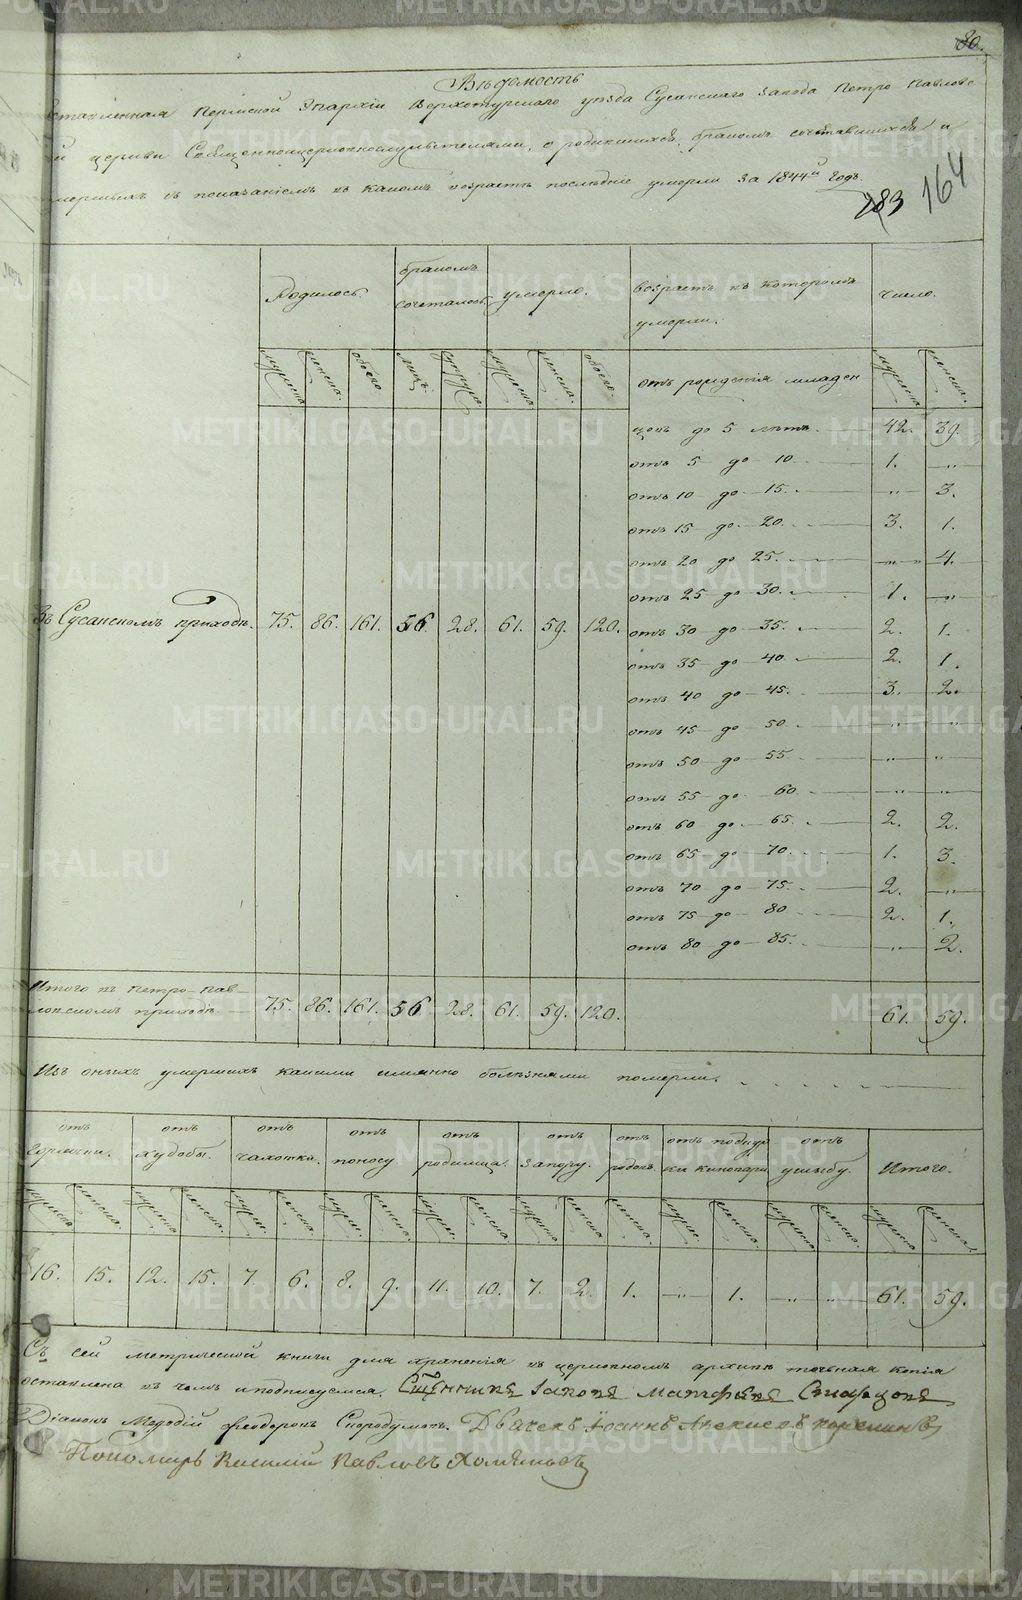 80.
Вѣдомость
ставленная Пермской Эпархіи Верхотурскаго уѣзда Сусанскаго завода Петро Павловс
й церкви Священноцерковнослужителями, о родившихся, бракомъ сочетавшихся и
мершихъ съ показаніемъ въ какомъ возрастѣ послѣдніе умерли за 1844й годъ.
283 164
Родилось. бракомъ сочеталось. умерло. возрастъ въ которомъ умерли. число.
мужеска. женска. обоего. лицъ. супруж. мужеска. женска. обоего. отъ рожденія младен мужеска. женска.
цовъ до 5 лѣтъ. 42. 39.
отъ 5 до 10 1. „
отъ 10 до 15. „ 3.
отъ 15 до 20. 3. 1.
отъ 20 до 25. „ 4.
отъ 25 до 30. 1. „
Въ Сусанскомъ приходѣ. 75. 86. 161. 56. 28. 61. 59. 120. отъ 30 до 35. 2. 1.
отъ 35 до 40 2. 1.
отъ 40 до 45. 3. 2.
отъ 45 до 50 „ „
отъ 50 до 55 „ „
отъ 55 до 60 „ „
отъ 60 до 65. 2. 2.
отъ 65 до 70. 1. 3.
отъ 70 до 75. 2. „
отъ 75 до 80 2. 1.
отъ 80 до 85. „ 2.
Итого въ Петро-Пав-
ловскомъ приходѣ. 75. 86. 161. 56 28. 61. 59. 120. 61. 59.
Изъ оныхъ умершихъ какими имянно болѣзнями померли.
отъ горячки. отъ худобы. отъ чахотки. отъ поносу отъ родимца. отъ запору. отъ родовъ. отъ отъ ушыбу. Итого.
мужеска. женска. мужеска. женска. муже. женска. муже. женска. муже. женска. мужеска женска. женска. муже. женска. мужеска женска. мужеска женска.
16. 15. 12. 15. 7. 6. 8. 9. 11. 10. 7. 2. 1. „ 1. „ „ 61. 59.
Съ сей метрической книги для храненія въ церковномъ архивѣ точная копія
оставлена въ чемъ и подписуемся. Священникъ Iаковъ Матфѣевъ
Діаконъ Меѳодій Ѳеодоровъ Дьячекъ Iоаннъ Алексѣевъ
Пономарь Василій Павловъ Хомяковъ
METRIKI.GASO-URAL.RU